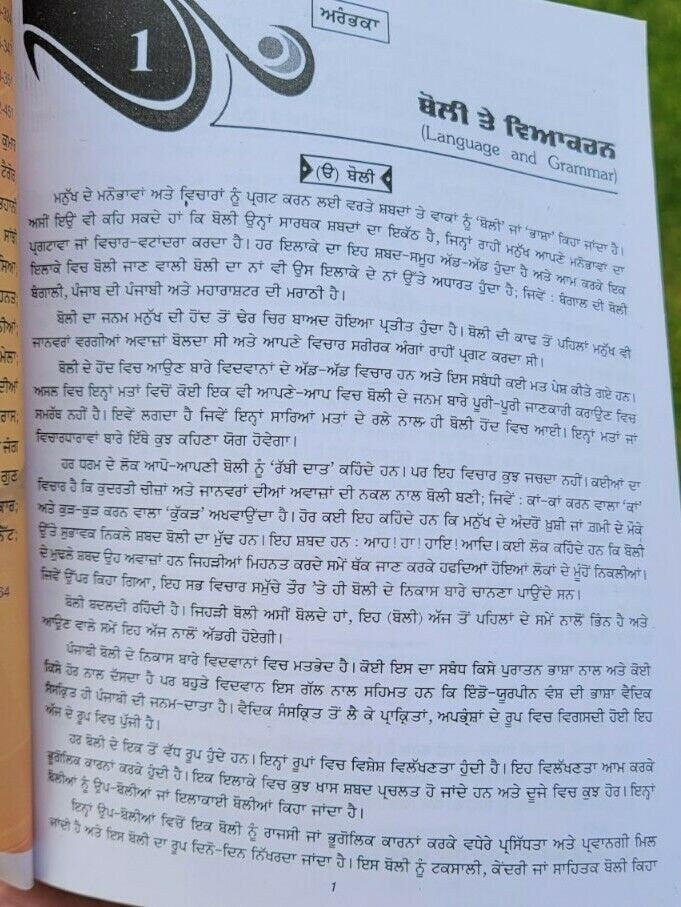 ਅਰੰਭਕਾ
1
ਬੋਲੀ ਤੇ ਵਿਆਕਰਨ
(Language and Grammar)
(ੳ) ਬੋਲੀ
ਮਨੁੱਖ ਦੇ ਮਨੋਭਾਵਾਂ ਅਤੇ ਵਿਚਾਰਾਂ ਨੂੰ ਪ੍ਰਗਟ ਕਰਨ ਲਈ ਵਰਤੇ ਸ਼ਬਦਾਂ ਤੇ ਵਾਕਾਂ ਨੂੰ ‘ਬੋਲੀ’ ਜਾਂ ‘ਭਾਸ਼ਾ’ ਕਿਹਾ ਜਾਂਦਾ ਹੈ।
ਅਸੀਂ ਇਉਂ ਵੀ ਕਹਿ ਸਕਦੇ ਹਾਂ ਕਿ ਬੋਲੀ ਉਨ੍ਹਾਂ ਸਾਰਥਕ ਸ਼ਬਦਾਂ ਦਾ ਇਕੱਠ ਹੈ, ਜਿਨ੍ਹਾਂ ਰਾਹੀਂ ਮਨੁੱਖ ਆਪਣੇ ਮਨੋਭਾਵਾਂ ਦਾ
ਪ੍ਰਗਟਾਵਾ ਜਾਂ ਵਿਚਾਰ-ਵਟਾਂਦਰਾ ਕਰਦਾ ਹੈ। ਹਰ ਇਲਾਕੇ ਦਾ ਇਹ ਸ਼ਬਦ-ਸਮੂਹ ਅੱਡ-ਅੱਡ ਹੁੰਦਾ ਹੈ ਅਤੇ ਆਮ ਕਰਕੇ ਇਕ
ਇਲਾਕੇ ਵਿਚ ਬੋਲੀ ਜਾਣ ਵਾਲੀ ਬੋਲੀ ਦਾ ਨਾਂ ਵੀ ਉਸ ਇਲਾਕੇ ਦੇ ਨਾਂ ਉੱਤੇ ਅਧਾਰਤ ਹੁੰਦਾ ਹੈ; ਜਿਵੇਂ : ਬੰਗਾਲ ਦੀ ਬੋਲੀ
ਬੰਗਾਲੀ, ਪੰਜਾਬ ਦੀ ਪੰਜਾਬੀ ਅਤੇ ਮਹਾਰਾਸ਼ਟਰ ਦੀ ਮਰਾਠੀ ਹੈ।
ਬੋਲੀ ਦਾ ਜਨਮ ਮਨੁੱਖ ਦੀ ਹੋਂਦ ਤੋਂ ਢੇਰ ਚਿਰ ਬਾਅਦ ਹੋਇਆ ਪ੍ਰਤੀਤ ਹੁੰਦਾ ਹੈ। ਬੋਲੀ ਦੀ ਕਾਢ ਤੋਂ ਪਹਿਲਾਂ ਮਨੁੱਖ ਵੀ
ਜਾਨਵਰਾਂ ਵਰਗੀਆਂ ਅਵਾਜ਼ਾਂ ਬੋਲਦਾ ਸੀ ਅਤੇ ਆਪਣੇ ਵਿਚਾਰ ਸਰੀਰਕ ਅੰਗਾਂ ਰਾਹੀਂ ਪ੍ਰਗਟ ਕਰਦਾ ਸੀ।
ਬੋਲੀ ਦੇ ਹੋਂਦ ਵਿਚ ਆਉਣ ਬਾਰੇ ਵਿਦਵਾਨਾਂ ਦੇ ਅੱਡ-ਅੱਡ ਵਿਚਾਰ ਹਨ ਅਤੇ ਇਸ ਸਬੰਧੀ ਕਈ ਮਤ ਪੇਸ਼ ਕੀਤੇ ਗਏ ਹਨ।
ਅਸਲ ਵਿਚ ਇਨ੍ਹਾਂ ਮਤਾਂ ਵਿਚੋਂ ਕੋਈ ਇਕ ਵੀ ਆਪਣੇ-ਆਪ ਵਿਚ ਬੋਲੀ ਦੇ ਜਨਮ ਬਾਰੇ ਪੂਰੀ-ਪੂਰੀ ਜਾਣਕਾਰੀ ਕਰਾਉਣ ਵਿਚ
ਸਮਰੱਥ ਨਹੀਂ ਹੈ। ਇਵੇਂ ਲਗਦਾ ਹੈ ਜਿਵੇਂ ਇਨ੍ਹਾਂ ਸਾਰਿਆਂ ਮਤਾਂ ਦੇ ਰਲੇ ਨਾਲ ਹੀ ਬੋਲੀ ਹੋਂਦ ਵਿਚ ਆਈ। ਇਨ੍ਹਾਂ ਮਤਾਂ ਜਾਂ
ਵਿਚਾਰਧਾਰਾਵਾਂ ਬਾਰੇ ਇੱਥੇ ਕੁਝ ਕਹਿਣਾ ਯੋਗ ਹੋਵੇਗਾ।
ਹਰ ਧਰਮ ਦੇ ਲੋਕ ਆਪੋ-ਆਪਣੀ ਬੋਲੀ ਨੂੰ ‘ਰੱਬੀ ਦਾਤ’ ਕਹਿੰਦੇ ਹਨ। ਪਰ ਇਹ ਵਿਚਾਰ ਕੁਝ ਜਚਦਾ ਨਹੀਂ। ਕਈਆਂ ਦਾ
ਵਿਚਾਰ ਹੈ ਕਿ ਕੁਦਰਤੀ ਚੀਜ਼ਾਂ ਅਤੇ ਜਾਨਵਰਾਂ ਦੀਆਂ ਅਵਾਜ਼ਾਂ ਦੀ ਨਕਲ ਨਾਲ ਬੋਲੀ ਬਣੀ; ਜਿਵੇਂ : ਕਾਂ-ਕਾਂ ਕਰਨ ਵਾਲਾ ‘ਕਾਂ’
ਅਤੇ ਕੁੜ-ਕੁੜ ਕਰਨ ਵਾਲਾ ‘ਕੁੱਕੜ’ ਅਖਵਾਉਂਦਾ ਹੈ। ਹੋਰ ਕਈ ਇਹ ਕਹਿੰਦੇ ਹਨ ਕਿ ਮਨੁੱਖ ਦੇ ਅੰਦਰੋਂ ਖ਼ੁਸ਼ੀ ਜਾਂ ਗ਼ਮੀ ਦੇ ਮੌਕੇ
ਉੱਤੇ ਸੁਭਾਵਕ ਨਿਕਲੇ ਸ਼ਬਦ ਬੋਲੀ ਦਾ ਮੁੱਢ ਹਨ। ਇਹ ਸ਼ਬਦ ਹਨ : ਆਹ! ਹਾ! ਹਾਇ! ਆਦਿ। ਕਈ ਲੋਕ ਕਹਿੰਦੇ ਹਨ ਕਿ ਬੋਲੀ
ਦੇ ਮੁਢਲੇ ਸ਼ਬਦ ਉਹ ਅਵਾਜ਼ਾਂ ਹਨ ਜਿਹੜੀਆਂ ਮਿਹਨਤ ਕਰਦੇ ਸਮੇਂ ਥੱਕ ਜਾਣ ਕਰਕੇ ਹਫਦਿਆਂ ਹੋਇਆਂ ਲੋਕਾਂ ਦੇ ਮੂੰਹੋਂ ਨਿਕਲੀਆਂ।
ਜਿਵੇਂ ਉੱਪਰ ਕਿਹਾ ਗਿਆ, ਇਹ ਸਭ ਵਿਚਾਰ ਸਮੁੱਚੇ ਤੌਰ ’ਤੇ ਹੀ ਬੋਲੀ ਦੇ ਨਿਕਾਸ ਬਾਰੇ ਚਾਨਣਾ ਪਾਉਂਦੇ ਸਨ।
ਬੋਲੀ ਬਦਲਦੀ ਰਹਿੰਦੀ ਹੈ। ਜਿਹੜੀ ਬੋਲੀ ਅਸੀਂ ਬੋਲਦੇ ਹਾਂ, ਇਹ (ਬੋਲੀ) ਅੱਜ ਤੋਂ ਪਹਿਲਾਂ ਦੇ ਸਮੇਂ ਨਾਲੋਂ ਭਿੰਨ ਹੈ ਅਤੇ
ਆਉਣ ਵਾਲੇ ਸਮੇਂ ਇਹ ਅੱਜ ਨਾਲੋਂ ਅੱਡਰੀ ਹੋਏਗੀ।
ਪੰਜਾਬੀ ਬੋਲੀ ਦੇ ਨਿਕਾਸ ਬਾਰੇ ਵਿਦਵਾਨਾਂ ਵਿਚ ਮਤਭੇਦ ਹੈ। ਕੋਈ ਇਸ ਦਾ ਸਬੰਧ ਕਿਸੇ ਪੁਰਾਤਨ ਭਾਸ਼ਾ ਨਾਲ ਅਤੇ ਕੋਈ
ਕਿਸੇ ਹੋਰ ਨਾਲ ਦੱਸਦਾ ਹੈ ਪਰ ਬਹੁਤੇ ਵਿਦਵਾਨ ਇਸ ਗੱਲ ਨਾਲ ਸਹਿਮਤ ਹਨ ਕਿ ਇੰਡੋ-ਯੂਰਪੀਨ ਵੰਸ਼ ਦੀ ਭਾਸ਼ਾ ਵੈਦਿਕ
ਸੰਸਕ੍ਰਿਤ ਹੀ ਪੰਜਾਬੀ ਦੀ ਜਨਮ-ਦਾਤਾ ਹੈ। ਵੈਦਿਕ ਸੰਸਕ੍ਰਿਤ ਤੋਂ ਲੈ ਕੇ ਪ੍ਰਾਕ੍ਰਿਤਾਂ, ਅਪਭ੍ਰੰਸ਼ਾਂ ਦੇ ਰੂਪ ਵਿਚ ਵਿਗਸਦੀ ਹੋਈ ਇਹ
ਅੱਜ ਦੇ ਰੂਪ ਵਿਚ ਪੁੱਜੀ ਹੈ।
ਹਰ ਬੋਲੀ ਦੇ ਇਕ ਤੋਂ ਵੱਧ ਰੂਪ ਹੁੰਦੇ ਹਨ। ਇਨ੍ਹਾਂ ਰੂਪਾਂ ਵਿਚ ਵਿਸ਼ੇਸ਼ ਵਿਲੱਖਣਤਾ ਹੁੰਦੀ ਹੈ। ਇਹ ਵਿਲੱਖਣਤਾ ਆਮ ਕਰਕੇ
ਭੂਗੋਲਿਕ ਕਾਰਨਾਂ ਕਰਕੇ ਹੁੰਦੀ ਹੈ। ਇਕ ਇਲਾਕੇ ਵਿਚ ਕੁਝ ਖਾਸ ਸ਼ਬਦ ਪ੍ਰਚਲਤ ਹੋ ਜਾਂਦੇ ਹਨ ਅਤੇ ਦੂਜੇ ਵਿਚ ਕੁਝ ਹੋਰ। ਇਨ੍ਹਾਂ
ਬੋਲੀਆਂ ਨੂੰ ਉਪ-ਬੋਲੀਆਂ ਜਾਂ ਇਲਾਕਾਈ ਬੋਲੀਆਂ ਕਿਹਾ ਜਾਂਦਾ ਹੈ।
ਇਨ੍ਹਾਂ ਉਪ-ਬੋਲੀਆਂ ਵਿਚੋਂ ਇਕ ਬੋਲੀ ਨੂੰ ਰਾਜਸੀ ਜਾਂ ਭੂਗੋਲਿਕ ਕਾਰਨਾਂ ਕਰਕੇ ਵਧੇਰੇ ਪ੍ਰਸਿੱਧਤਾ ਅਤੇ ਪ੍ਰਵਾਨਗੀ ਮਿਲ
ਜਾਂਦੀ ਹੈ ਅਤੇ ਇਸ ਬੋਲੀ ਦਾ ਰੂਪ ਦਿਨੋ-ਦਿਨ ਨਿੱਖਰਦਾ ਜਾਂਦਾ ਹੈ। ਇਸ ਬੋਲੀ ਨੂੰ ਟਕਸਾਲੀ, ਕੇਂਦਰੀ ਜਾਂ ਸਾਹਿਤਕ ਬੋਲੀ ਕਿਹਾ
1